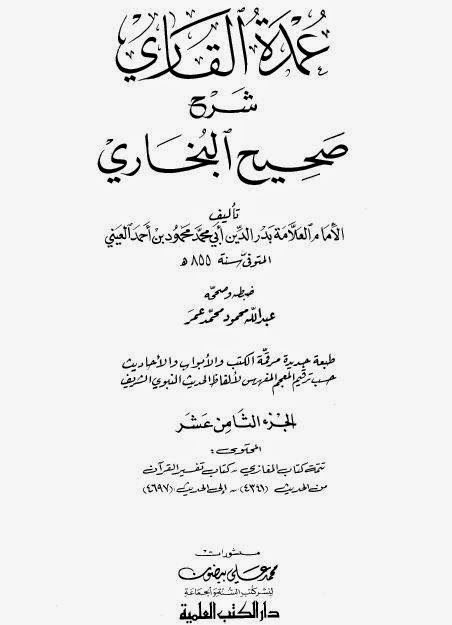 عُمْدَةُ ٱلْقَارِي
شرح
صَحِيح ٱلْبُخَارِي
تأليف
الإمام العلّامة بدر الدين أبي محمد محمود بن أحمد العيني
المتوفى سنة ٨٥٥ هـ
ضبطه وصححه
عبد الله محمود محمد عمر
طبعة جديدة مرقمة الكتب والأبواب والأحاديث
حسب ترقيم المعجم المفهرس لألفاظ الحديث النبوي الشريف
الجزء الثامن عشر
المحتوى:
تتمة كتاب المغازي - كتاب تفسير القرآن
من الحديث (٤٣٤١) - إلى الحديث (٤٦٩٧)
منشورات
محمد علي بيضون
لنشر كتب السنة والجماعة
دار الكتب العلمية